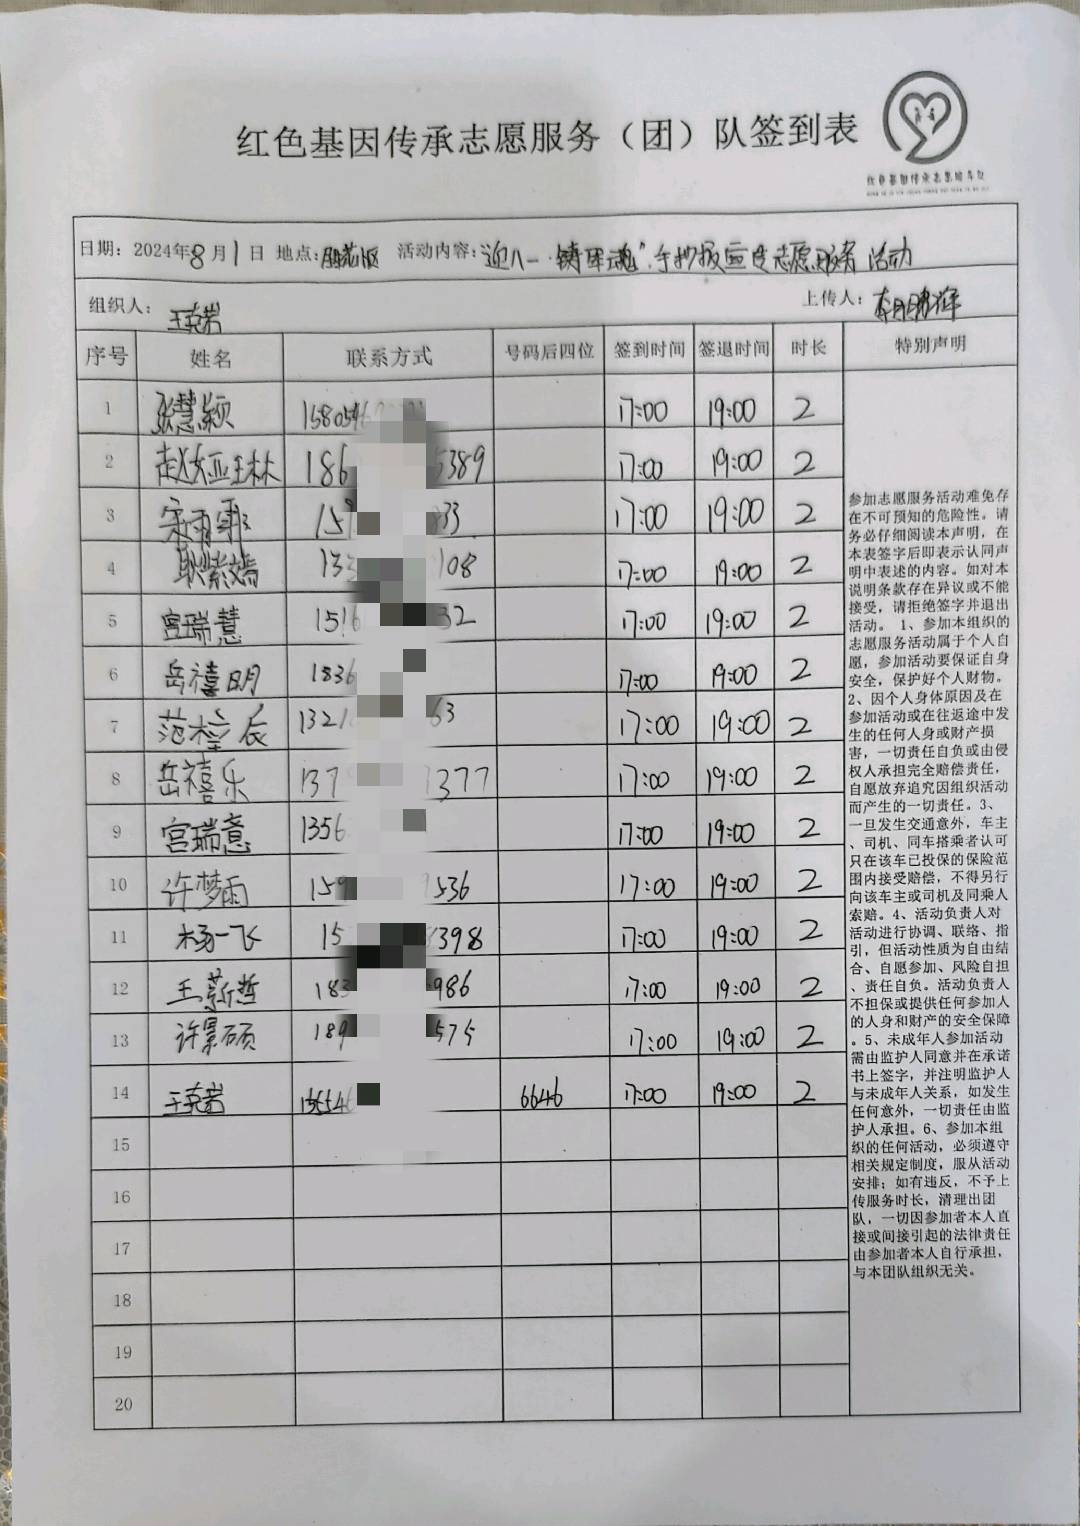 红色基因传承志愿服务（团）队签到表
日期：2024年8月1日 地点： 活动内容：迎八一·铸军魂"手抄报宣传志愿服务活动
组织人：王克岩 上传人：
序号 姓名 联系方式 号码后四位 签到时间 签退时间 时长 特别声明
1 张慧颖 158054 17:00 19:00 2
2 186 5389 17:00 19:00 2
3 宋雨 15 833 17:00 19:00 2
4 耿紫嫣 133 108 17:00 19:00 2
5 宫瑞慧 1516 32 17:00 19:00 2
6 岳禧明 1836 17:00 19:00 2
7 范梓辰 1321 63 17:00 19:00 2
8 岳禧乐 137 1377 17:00 19:00 2
9 宫瑞意 1356 17:00 19:00 2
10 许梦雨 159 9536 17:00 19:00 2
11 杨一飞 15 3398 17:00 19:00 2
12 王薪哲 183 986 17:00 19:00 2
13 许景硕 189 575 17:00 19:00 2
14 王克岩 15554 6646 17:00 19:00 2
15
16
17
18
19
20
参加志愿服务活动难免存
在不可预知的危险性。请
务必仔细阅读本声明，在
本表签字后即表示认同声
明中表述的内容。如对本
说明条款存在异议或不能
接受，请拒绝签字并退出
活动。 1、参加本组织的
志愿服务活动属于个人自
愿，参加活动要保证自身
安全，保护好个人财物。
2、因个人身体原因及在
参加活动或在往返途中发
生的任何人身或财产损
害，一切责任自负或由侵
权人承担完全赔偿责任，
自愿放弃追究因组织活动
而产生的一切责任。3、
一旦发生交通意外，车主
、司机、同车搭乘者认可
只在该车已投保的保险范
围内接受赔偿，不得另行
向该车主或司机及同乘人
索赔。4、活动负责人对
活动进行协调、联络、指
引，但活动性质为自由结
合、自愿参加、风险自担
、责任自负。活动负责人
不担保或提供任何参加人
的人身和财产的安全保障
。5、未成年人参加活动
需由监护人同意并在承诺
书上签字，并注明监护人
与未成年人关系，如发生
任何意外，一切责任由监
护人承担。6、参加本组
织的任何活动，必须遵守
相关规定制度，服从活动
安排；如有违反，不予上
传服务时长，清理出团
队，一切因参加者本人直
接或间接引起的法律责任
由参加者本人自行承担，
与本团队组织无关。